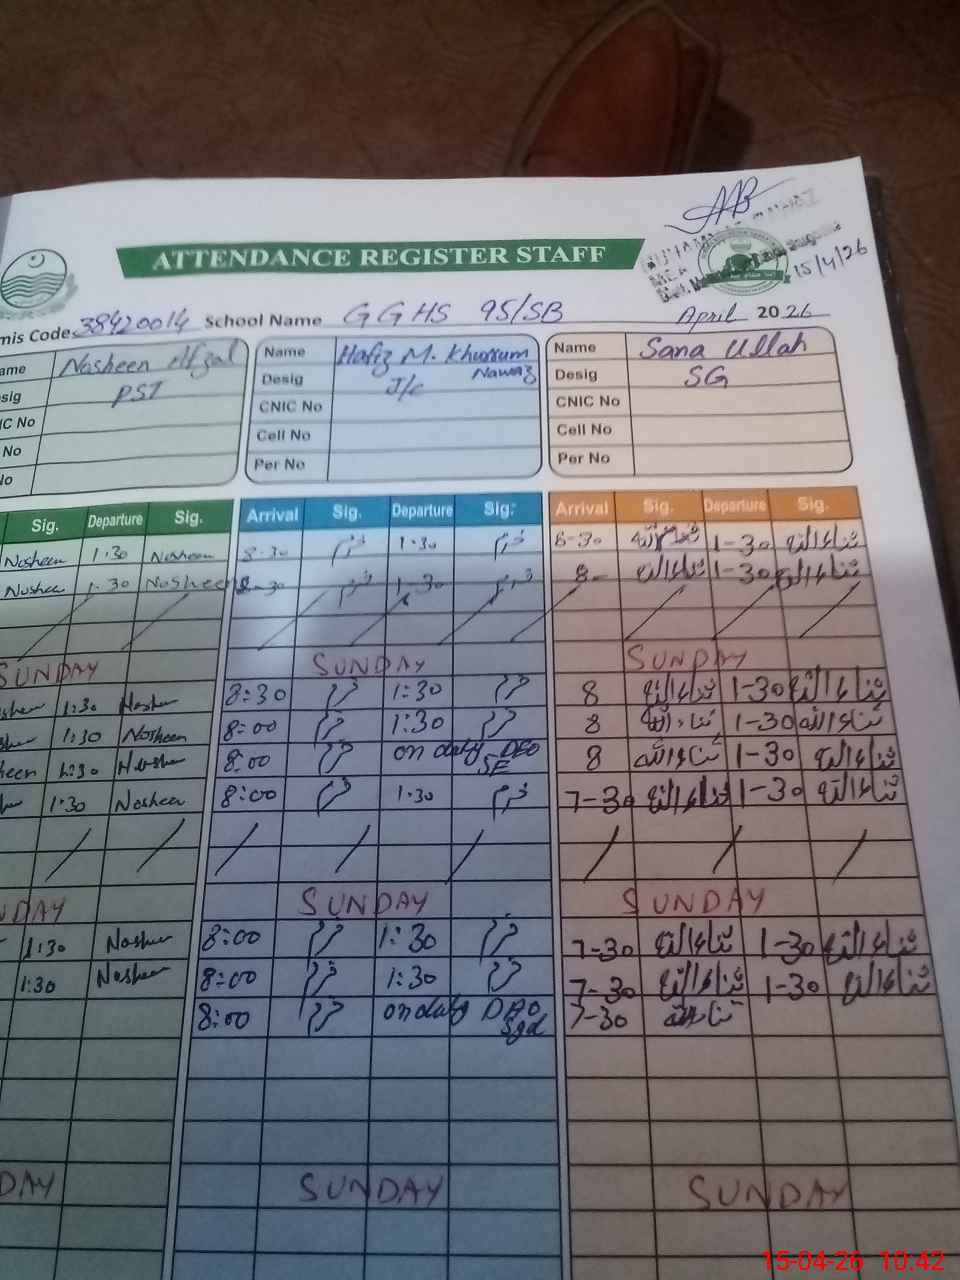 AB
15/4/26
ATTENDANCE REGISTER STAFF
mis Code 38420014 School Name GGHS 95/SB April 2026
ame Nosheen Afzal Name Hafiz M. Khurrum Nawaz Name Sana Ullah
sig PST Desig J/c Desig SG
IC No CNIC No CNIC No
No Cell No Cell No
No Per No Per No
Sig. Departure Sig. Arrival Sig. Departure Sig. Arrival Sig. Departure Sig.
Nosheen 1:30 Nosheen 8-30 خرم 1:30 خرم 8-30 ثناءاللہ 1-30 ثناءاللہ
Noshee 1:30 Nosheen 8-30 خرم 1-30 خرم 8- ثناءاللہ 1-30 ثناءاللہ
SUNDAY SUNDAY SUNDAY
1:30 Noshe 8:30 خرم 1:30 خرم 8 ثناءاللہ 1-30 ثناءاللہ
1:30 Nosheen 8:00 خرم 1:30 خرم 8 ثناءاللہ 1-30 ثناءاللہ
heen 1:30 8:00 خرم on duty DEO SE 8 ثناءاللہ 1-30 ثناءاللہ
1:30 Nosheen 8:00 خرم 1:30 خرم 7-30 ثناءاللہ 1-30 ثناءاللہ
NDAY SUNDAY SUNDAY
1:30 Nosheen 8:00 خرم 1:30 خرم 7-30 ثناءاللہ 1-30 ثناءاللہ
1:30 Nosheen 8:00 خرم 1:30 خرم 7-30 ثناءاللہ 1-30 ثناءاللہ
8:00 خرم on duty DAO Sgd 7-30 ثناءاللہ
DAY SUNDAY SUNDAY
15-04-26 10:42